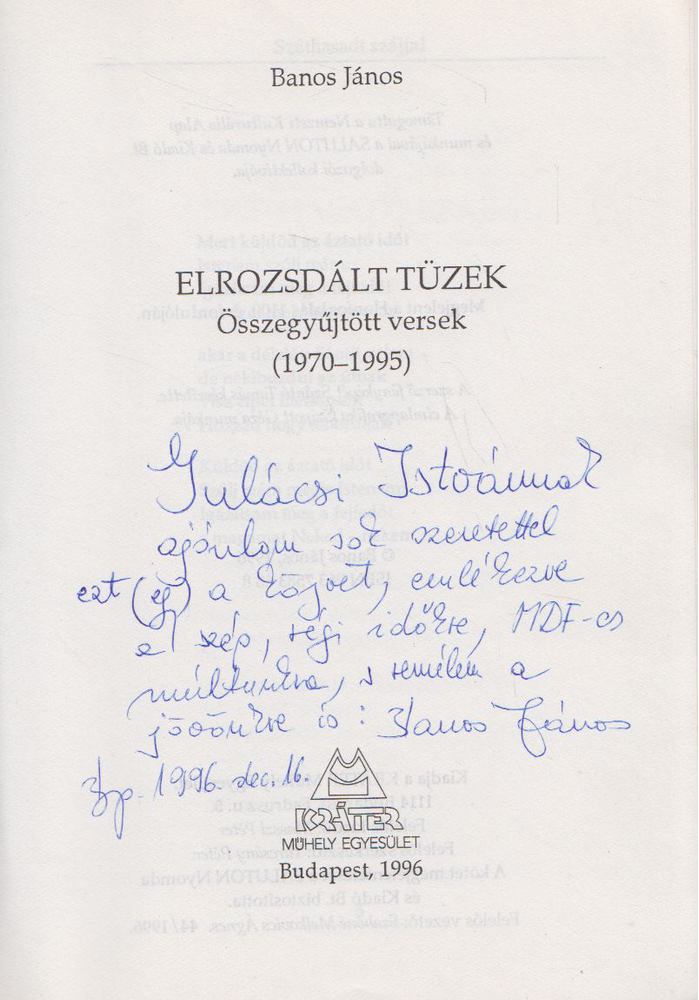 Banos János
ELROZSDÁLT TÜZEK
Összegyűjtött versek
(1970–1995)
Gulácsi Istvánnak
ajánlom sok szeretettel
ezt (az) a könyvet, emlékezve
a szép, régi időkre, MDF-es
múltunkra, s remélem a
jövőnkre is: Banos János
Bp. 1996. dec. 16.
KRÁTER
MŰHELY EGYESÜLET
Budapest, 1996